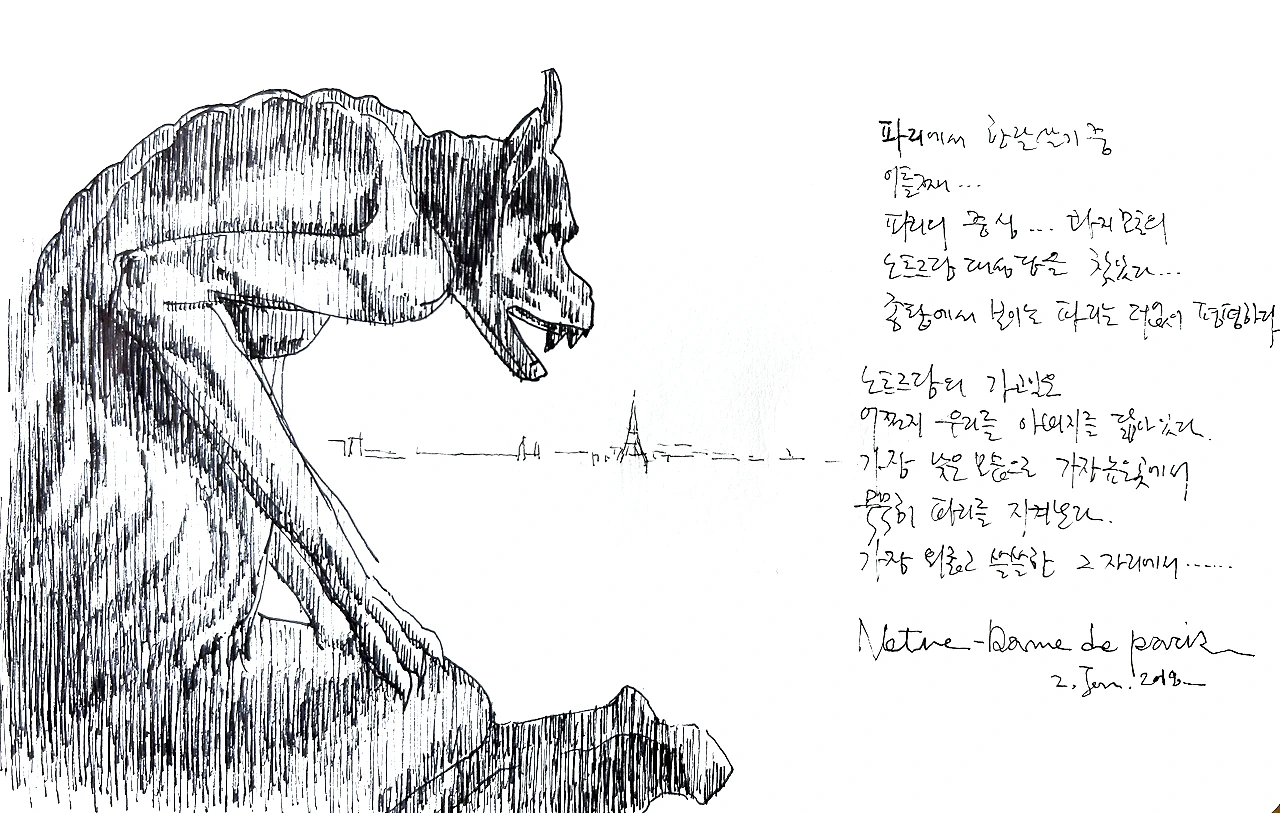 파리에서 한달살기 중
이틀째...
파리의 중심... 하지만
노트르담 대성당을 찾았다...
종탑에서 보이는 파리는 더없이 평평하다
노트르담의 가고일은
어쩐지 우리를 아버지를 닮아있다.
가장 낮은 모습으로 가장 높은 곳에서
묵묵히 파리를 지켜본다.
가장 외롭고 쓸쓸한 그 자리에서......
Notre-Dame de paris
2. Jan. 2018